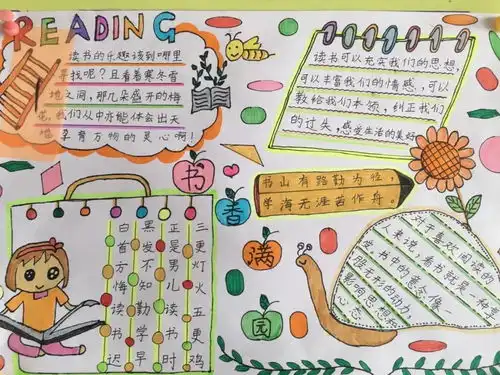 READING
读书的乐趣该到哪里
寻找呢？且看着寒冬雪
地之间，那几朵盛开的梅
花，我们从中亦能体会出天
地孕育万物的灵心啊！
读书可以充实我们的思想，
可以丰富我们的情感，可以
教给我们本领，纠正我们
的过失，感受生活的美好
书山有路勤为径，
学海无涯苦作舟。
书
香
满
园
三更灯火五更鸡
正是男儿读书时
黑发不知勤学早
白首方悔读书迟
于喜欢阅读的
人来说，看书就是一种
书中的意念像一
股无形的动力，
影响思想
心态